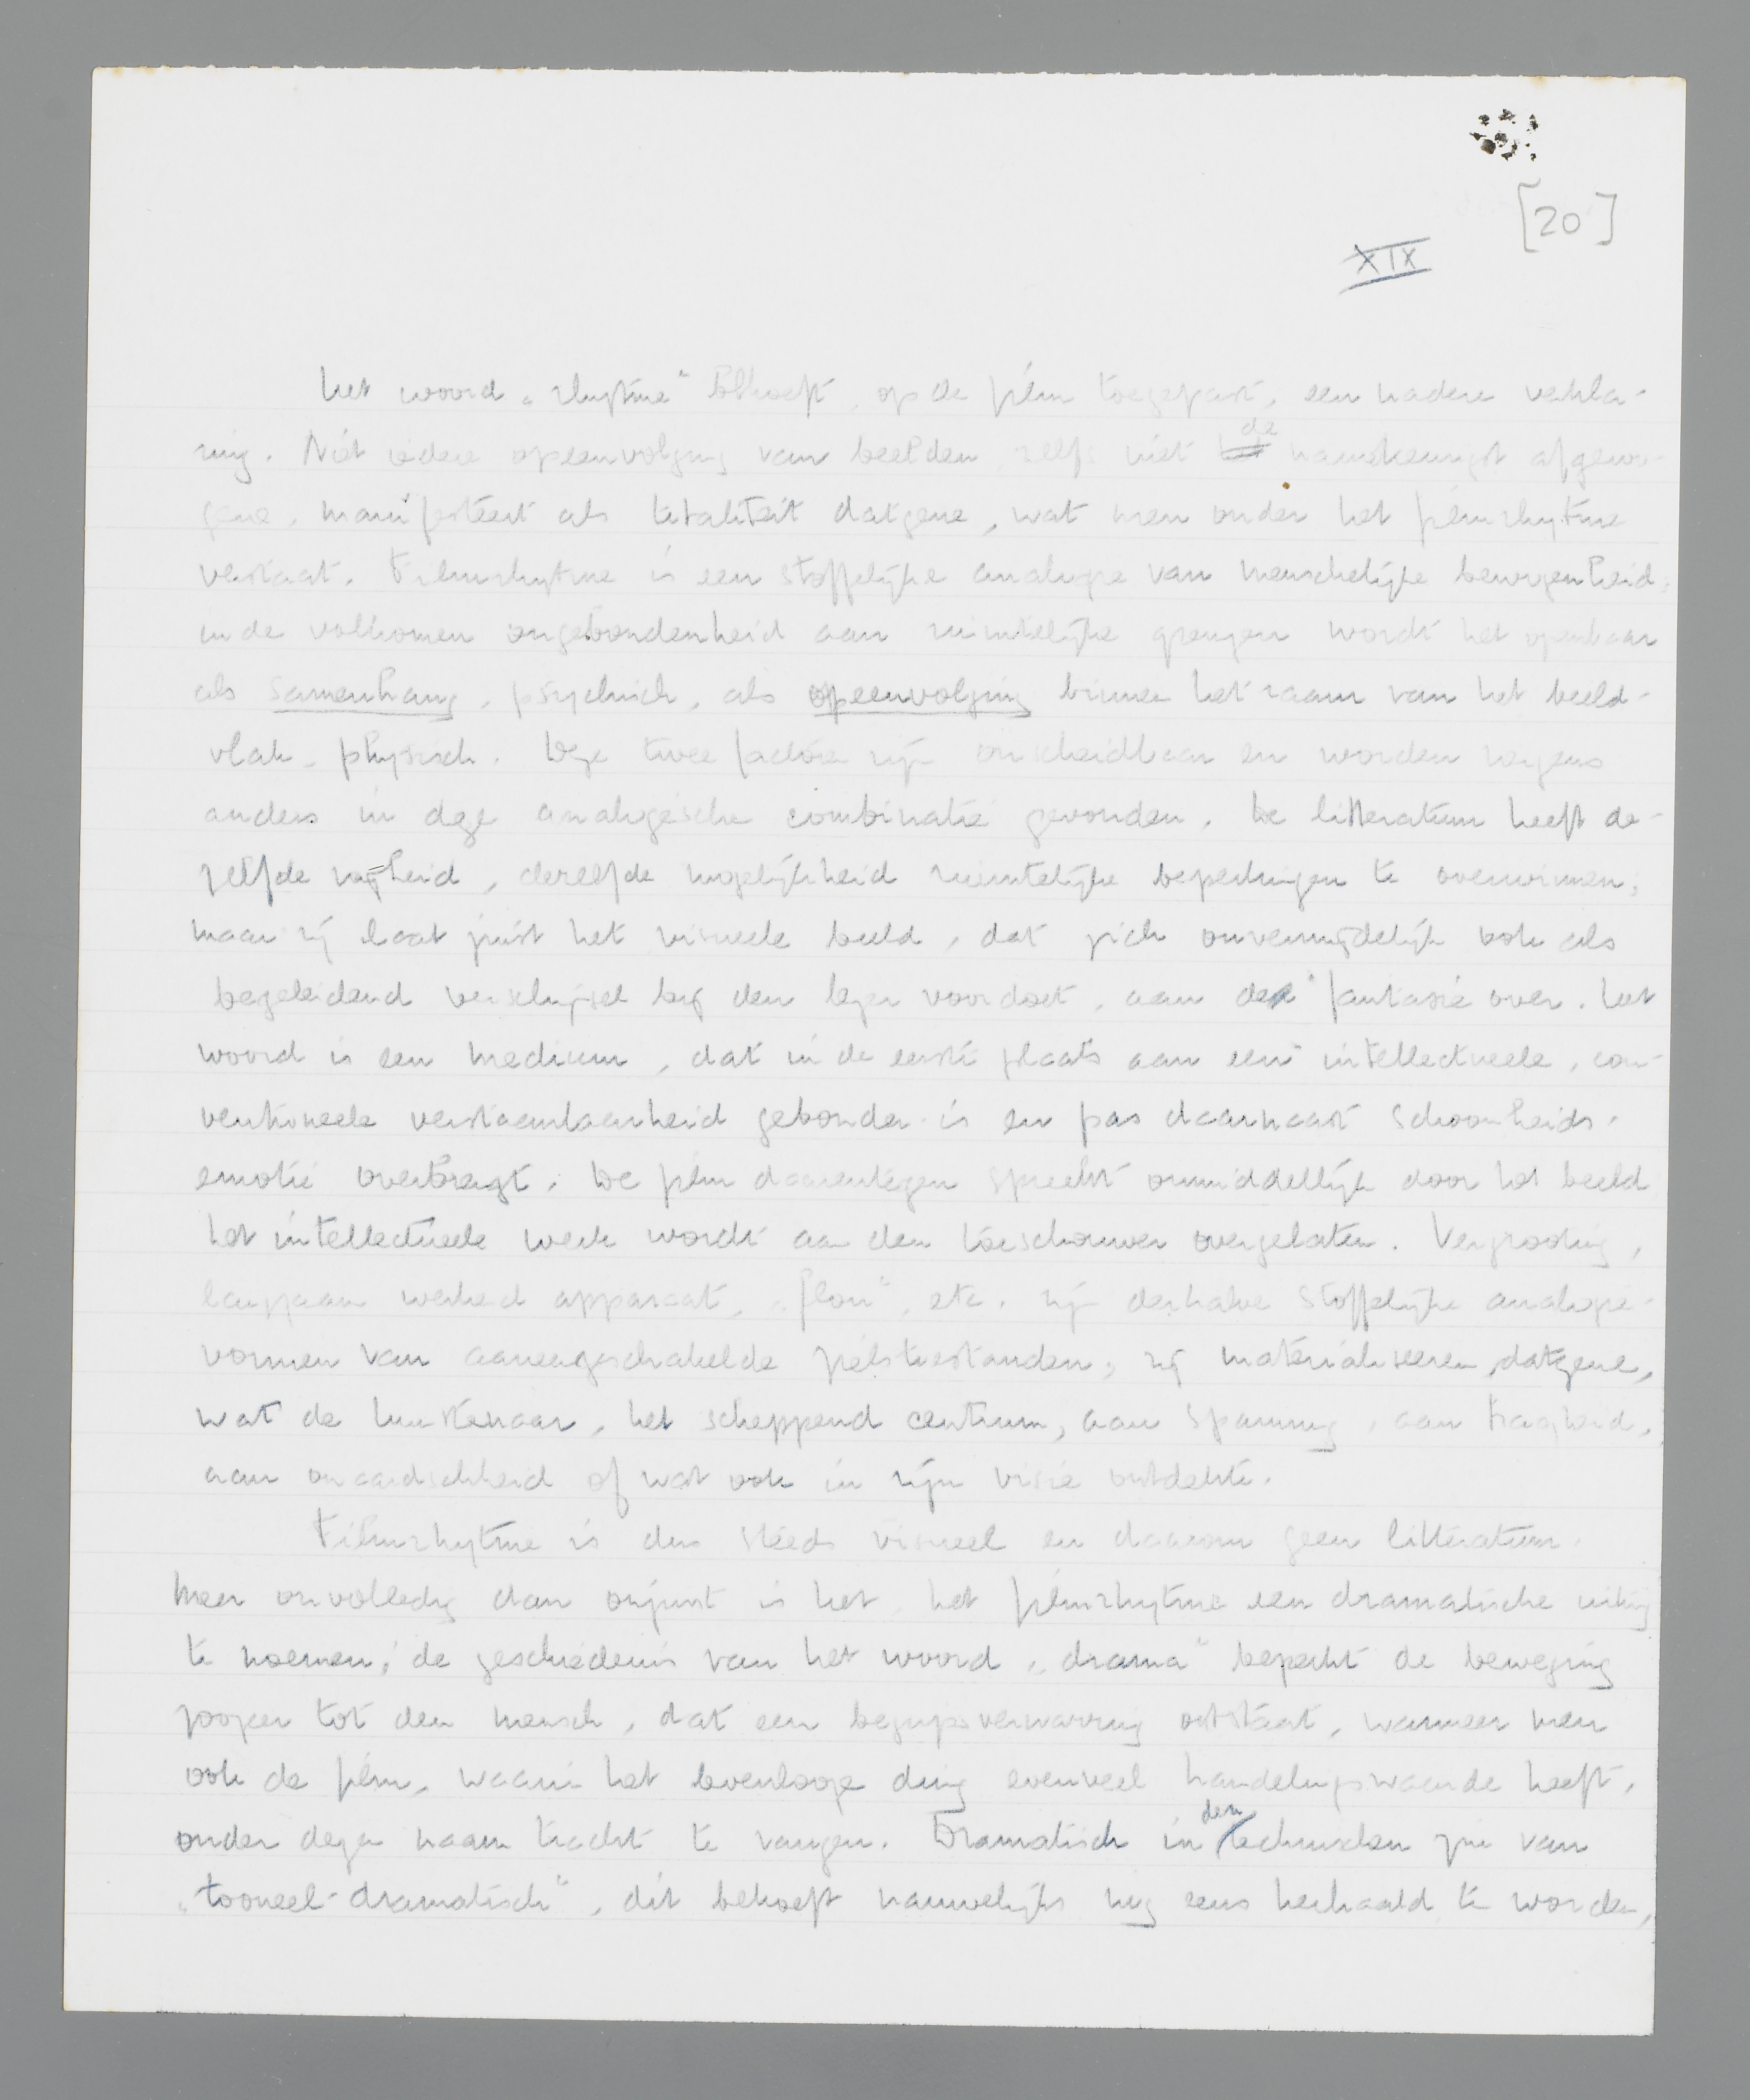 [20]
XIX
Het woord „rhytme" behoeft, op de film toegepast, een nadere verkla-
ring. Niet iedere opeenvolging van beelden, zelfs niet de nauwkeurigst afgewo-
gene, manifesteert als totaliteit datgene, wat men onder het filmrhytme
verstaat. Filmrhytme is een stoffelijke analogie van menschelijke bewogenheid;
in de volkomen ongebondenheid aan ruimtelijke grenzen wordt het openbaar
als samenhang, psychisch, als opeenvolging binnen het raam van het beeld-
vlak, physisch. Deze twee factoren zijn onscheidbaar en worden nergens
anders in deze analogische combinatie gevonden. De litteratuur heeft de-
zelfde vrijheid, dezelfde mogelijkheid ruimtelijke beperkingen te overwinnen;
maar zij laat juist het visueele beeld, dat zich onvermijdelijk ook als
begeleidend verschijnsel bij den lezer voordoet, aan de fantasie over. Het
woord is een medium, dat in de eerste plaats aan een intellectueele, con-
ventioneele verstaanbaarheid gebonden is en pas daarnaast schoonheids-
emotie overbrengt. De film daarentegen spreekt onmiddellijk door het beeld
het intellectueele werk wordt aan den toeschouwer overgelaten. Vergrooting,
langzaam werkend apparaat, „flou", etc. zijn derhalve stoffelijke analogie-
vormen van aaneengeschakelde zielstoestanden; zij materialiseeren datgene,
wat de kunstenaar, het scheppend centrum, aan spanning, aan traagheid,
aan onaardschheid of wat ook in zijn visie ontdekte.
Filmrhytme is dus steeds visueel en daarom geen litteratuur.
Meer onvolledig dan onjuist is het, het filmrhytme een dramatische uiting
te noemen; de geschiedenis van het woord „drama" beperkt de beweging
zoozeer tot den mensch, dat een begripsverwarring ontstaat, wanneer men
ook de film, waarin het levenlooze ding evenveel handelingswaarde heeft,
onder dezen naam tracht te vangen. Dramatisch in den technischen zin van
„tooneel-dramatisch", dit behoeft nauwelijks nog eens herhaald te worden,